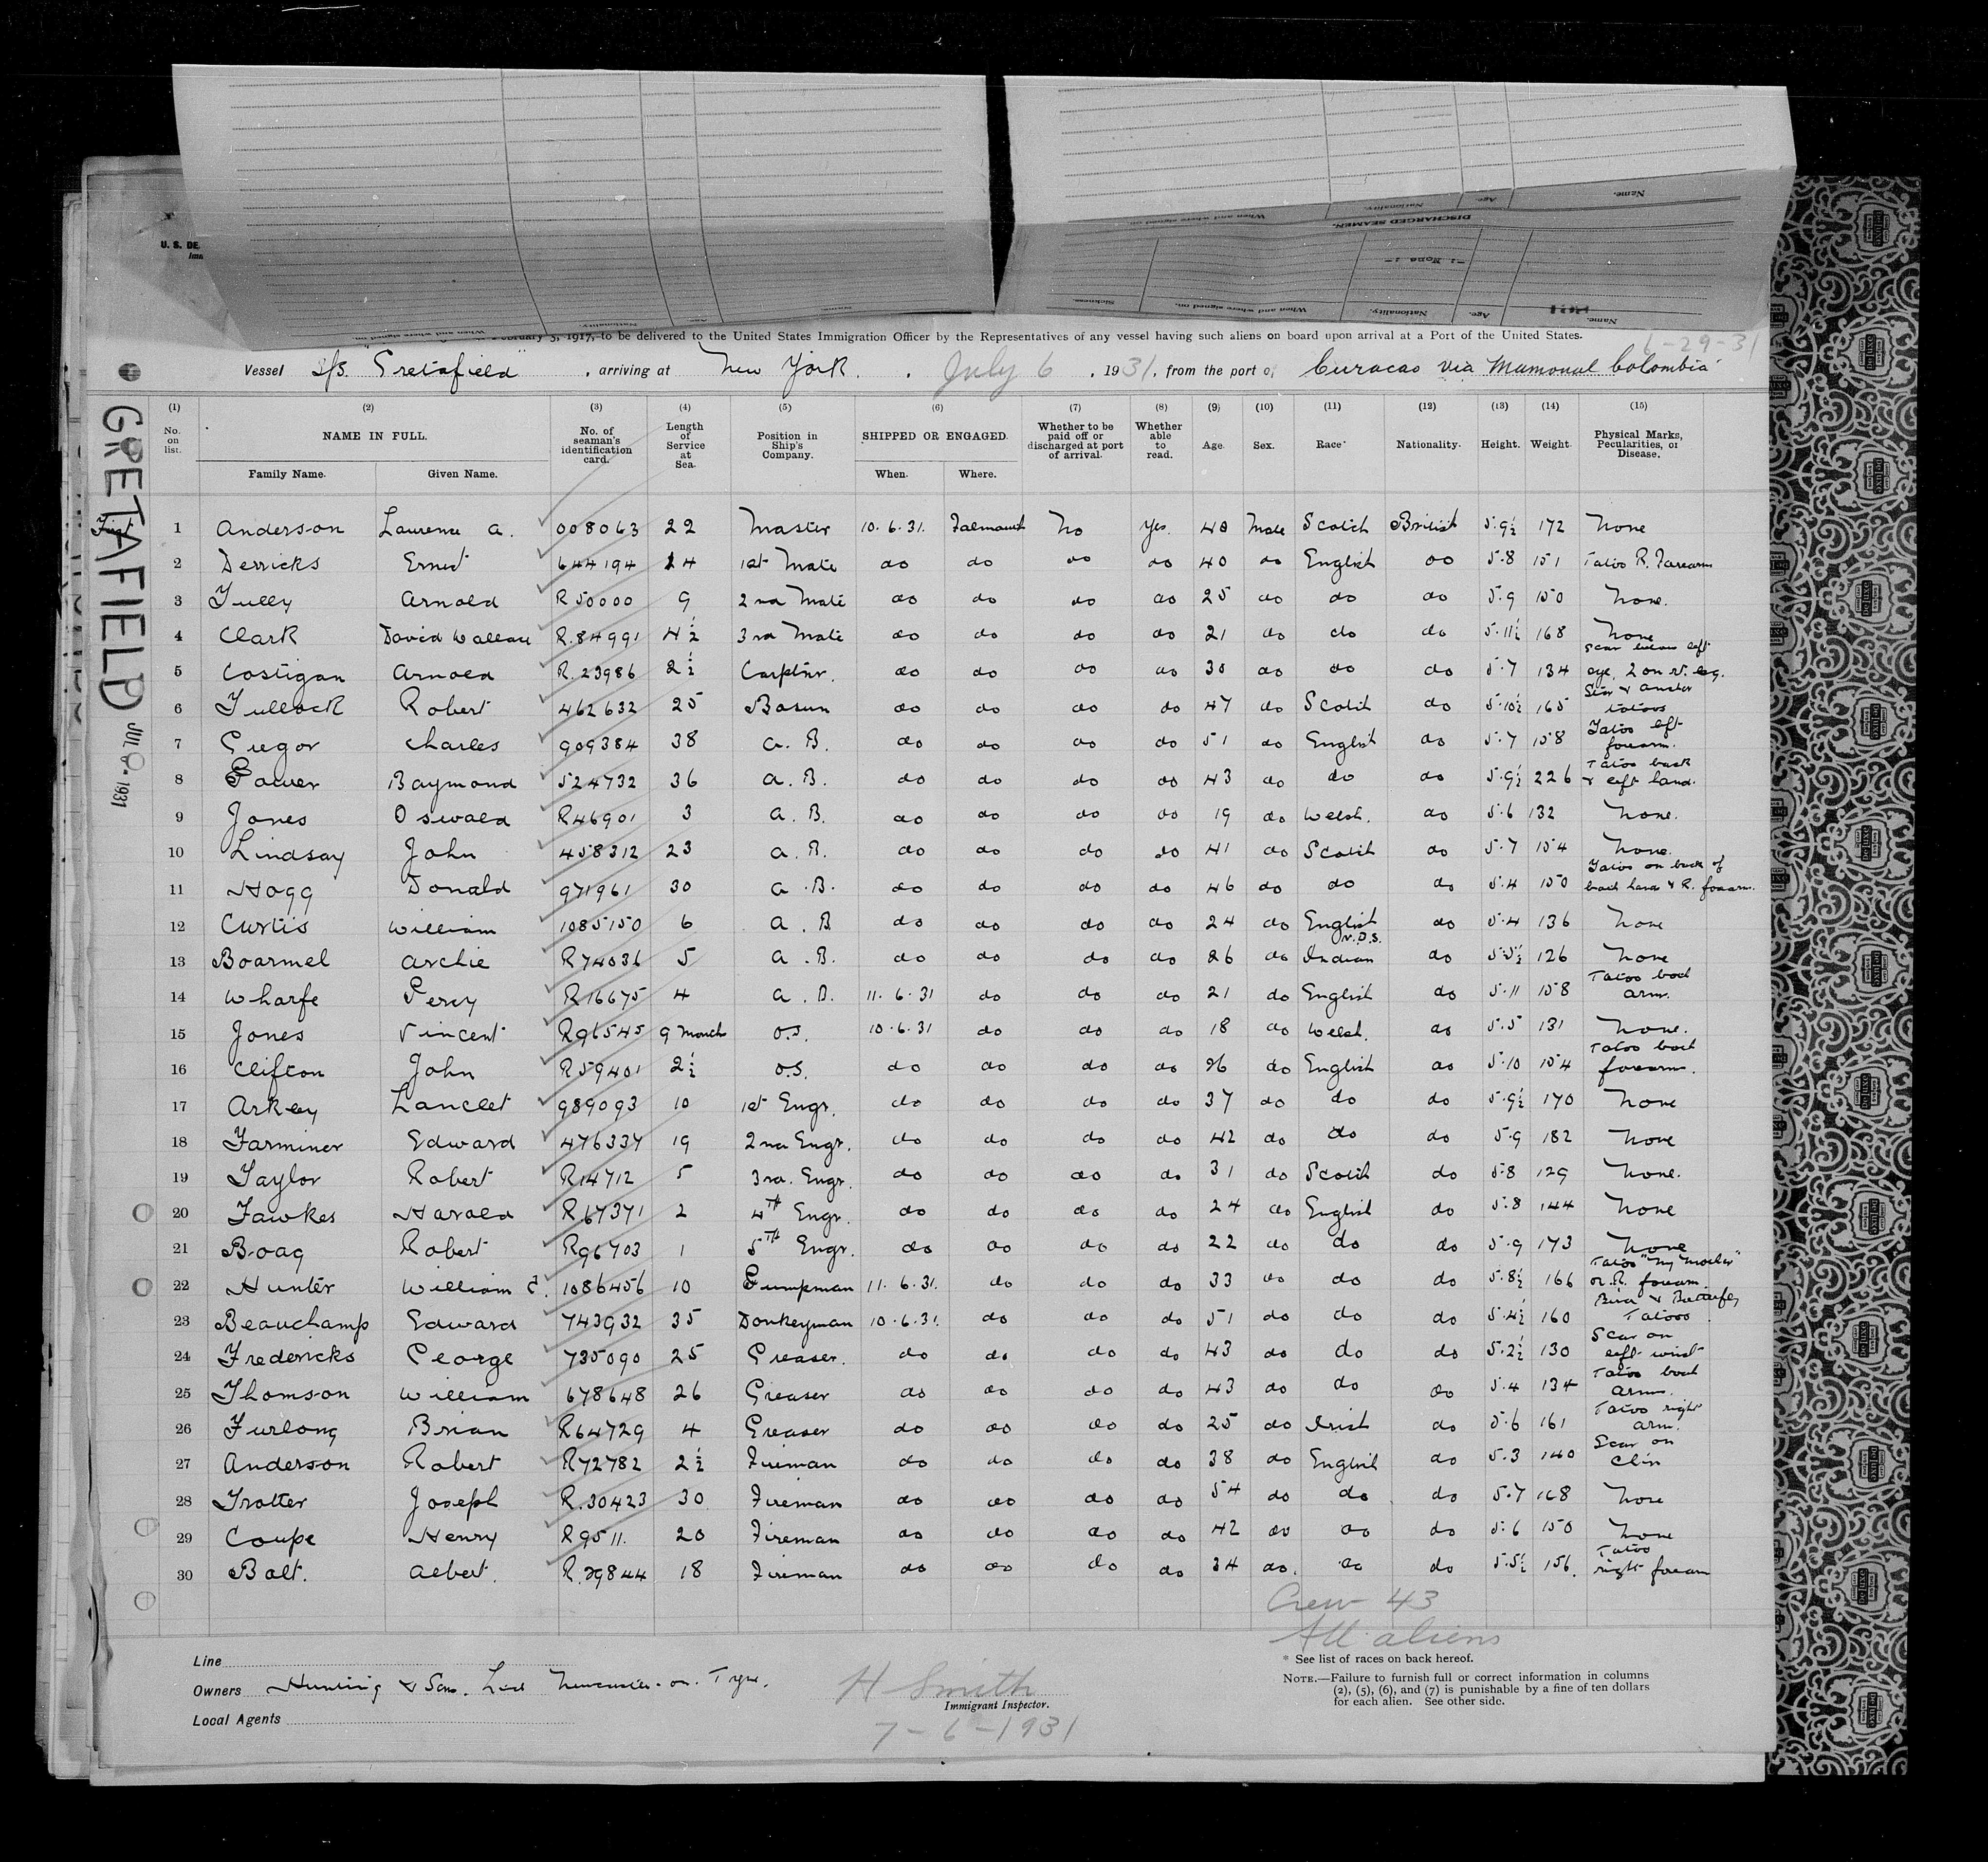 U. S. DE
Imm
Name.
Age.
Nationality.
When and where signed on
DISCHARGED SEAMEN.
-: None :-
Name.
Age.
Nationality.
When and where signed on.
Sickness.
Name.
Age.
Nationality.
When and where signed on
February 5, 1917, to be delivered to the United States Immigration Officer by the Representatives of any vessel having such aliens on board upon arrival at a Port of the United States.
6-29-31
Vessel S/S. "Gretafield", arriving at New York. July 6, 1931, from the port of Curacao via Mamonal Colombia
GRETAFIELD
JUL 6 - 1931
(1) (2) (3) (4) (5) (6) (7) (8) (9) (10) (11) (12) (13) (14) (15)
No. on list. NAME IN FULL. Family Name. Given Name. No. of seaman's identification card. Length of Service at Sea. Position in Ship's Company. SHIPPED OR ENGAGED. When. Where. Whether to be paid off or discharged at port of arrival. Whether able to read. Age. Sex. Race* Nationality. Height. Weight. Physical Marks, Pecularities, or Disease.
First 1 Anderson Laurence A. 008063 22 Master 10.6.31. Falmouth No Yes. 48 Male Scotch British 5.9½ 172 None
2 Derricks Ernest 644194 24 1st Mate do do do do 40 do English do 5.8 151 Tatoo R. Forearm
3 Tulley Arnold R50000 9 2nd Mate do do do do 25 do do do 5.9 150 None.
4 Clark David Wallace R.84991 4½ 3rd Mate do do do do 21 do do do 5.11½ 168 None
5 Costigan Arnold R.23986 2½ Carptnr. do do do do 30 do do do 5.7 134 Scar below left eye, 2 on rt. leg.
6 Tullock Robert 462632 25 Bosun do do do do 47 do Scotch do 5.10½ 165 Star & Anchor tatoos
7 Gregor Charles 909384 38 A.B. do do do do 51 do English do 5.7 158 Tatoo left forearm.
8 Power Raymond 524732 36 A.B. do do do do 43 do do do 5.9½ 226 Tatoo back & left hand.
9 Jones Oswald R46901 3 A.B. do do do do 19 do Welsh. do 5.6 132 None.
10 Lindsay John 458312 23 A.B. do do do do 41 do Scotch do 5.7 154 None.
11 Hogg Donald 971961 30 A.B. do do do do 46 do do do 5.4 150 Tatoo on back of both hands & R. forearm.
12 Curtis William 1085150 6 A.B do do do do 24 do English do 5.4 136 None
13 Boarmel Archie R74036 5 A.B. do do do do 26 do W.D.S. Indian do 5.5½ 126 None
14 Wharfe Percy R16675 4 A.B. 11.6.31 do do do 21 do English do 5.11 158 Tatoo both arms.
15 Jones Vincent R96545 9 months O.S. 10.6.31 do do do 18 do Welsh. do 5.5 131 None.
16 Clifton John R59401 2½ O.S. do do do do 26 do English do 5.10 154 Tatoo both forearms.
17 Arkley Lancelot 989093 10 1st Engr. do do do do 37 do do do 5.9½ 170 None
18 Farminer Edward 476337 19 2nd Engr. do do do do 42 do do do 5.9 182 None
19 Taylor Robert R14712 5 3rd. Engr. do do do do 31 do Scotch do 5.8 129 None.
20 Fawkes Harold R67371 2 4th Engr. do do do do 24 do English do 5.8 144 None
21 Boag Robert R96703 1 5th Engr. do do do do 22 do do do 5.9 173 None
22 Hunter William C. 1086456 10 Pumpman 11.6.31. do do do 33 do do do 5.8½ 166 Tatoo "My Mother" on R. forearm.
23 Beauchamp Edward 743932 35 Donkeyman 10.6.31. do do do 51 do do do 5.4½ 160 Bird & Butterfly Tatoos
24 Fredericks George 735090 25 Greaser. do do do do 43 do do do 5.2½ 130 Scar on left wrist
25 Thomson William 678648 26 Greaser do do do do 43 do do do 5.4 134 Tatoo both arms.
26 Furlong Brian R64729 4 Greaser do do do do 25 do Irish do 5.6 161 Tatoo right arm.
27 Anderson Robert R72782 2½ Fireman do do do do 38 do English do 5.3 140 Scar on Chin
28 Trotter Joseph R.30423 30 Fireman do do do do 54 do do do 5.7 168 None
29 Coupe Henry R9511. 20 Fireman do do do do 42 do do do 5.6 150 None
30 Bolt. Albert. R.29844 18 Fireman do do do do 34 do. do do 5.5½ 156. Tatoo right forearm
Crew 43
All aliens
Line
Owners Hunting & Son. Ltd Newcastle-on-Tyne.
Local Agents
H Smith
Immigrant Inspector.
7-6-1931
* See list of races on back hereof.
NOTE.—Failure to furnish full or correct information in columns
(2), (5), (6), and (7) is punishable by a fine of ten dollars
for each alien. See other side.